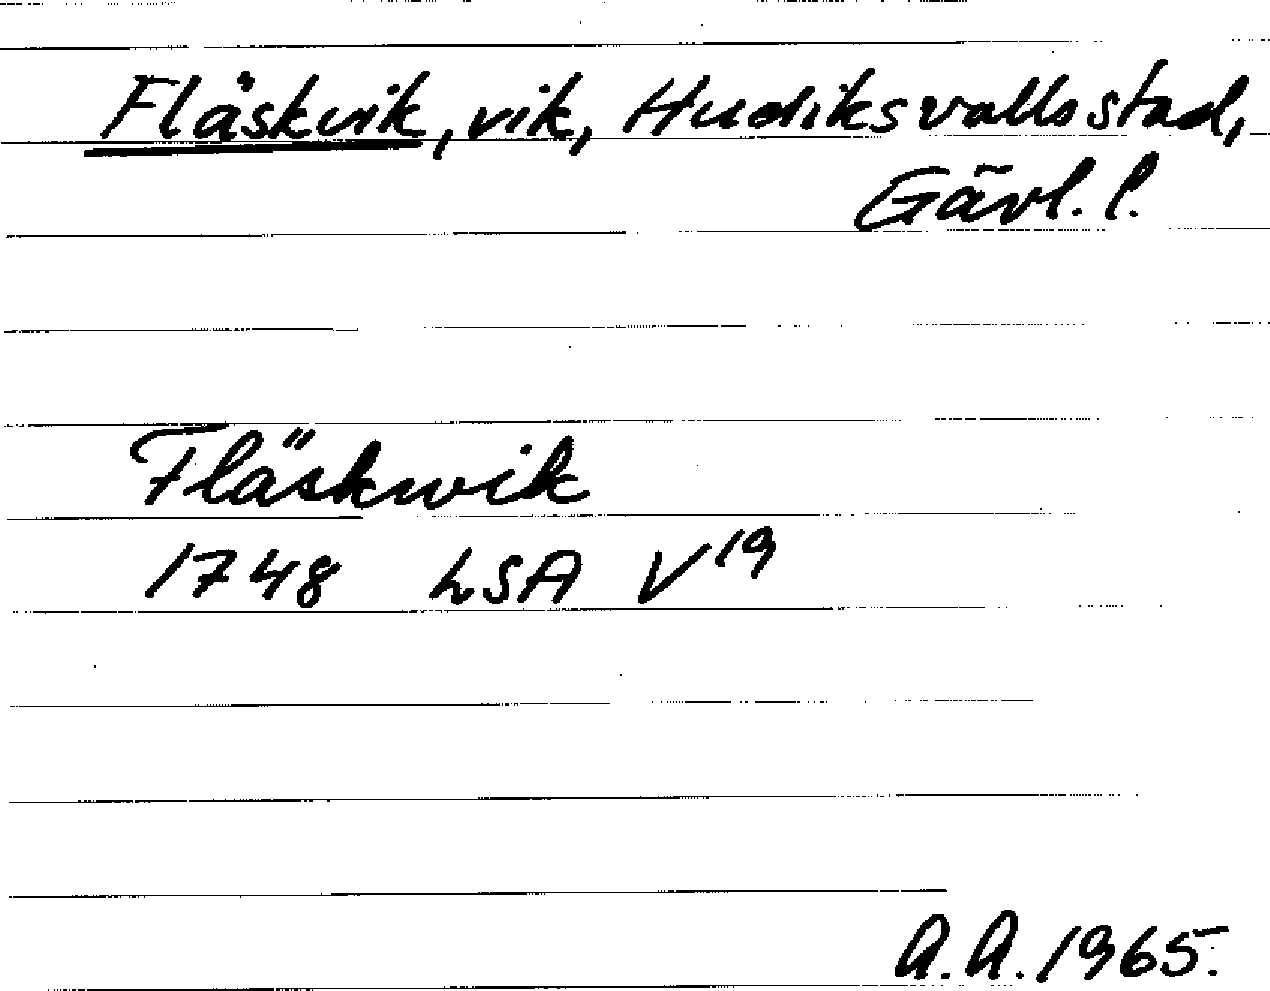 Fläskvik, vik, Hudiksvalls stad,
Gävl. l.
Fläskwik
1748 LSA V19
A.A. 1965.